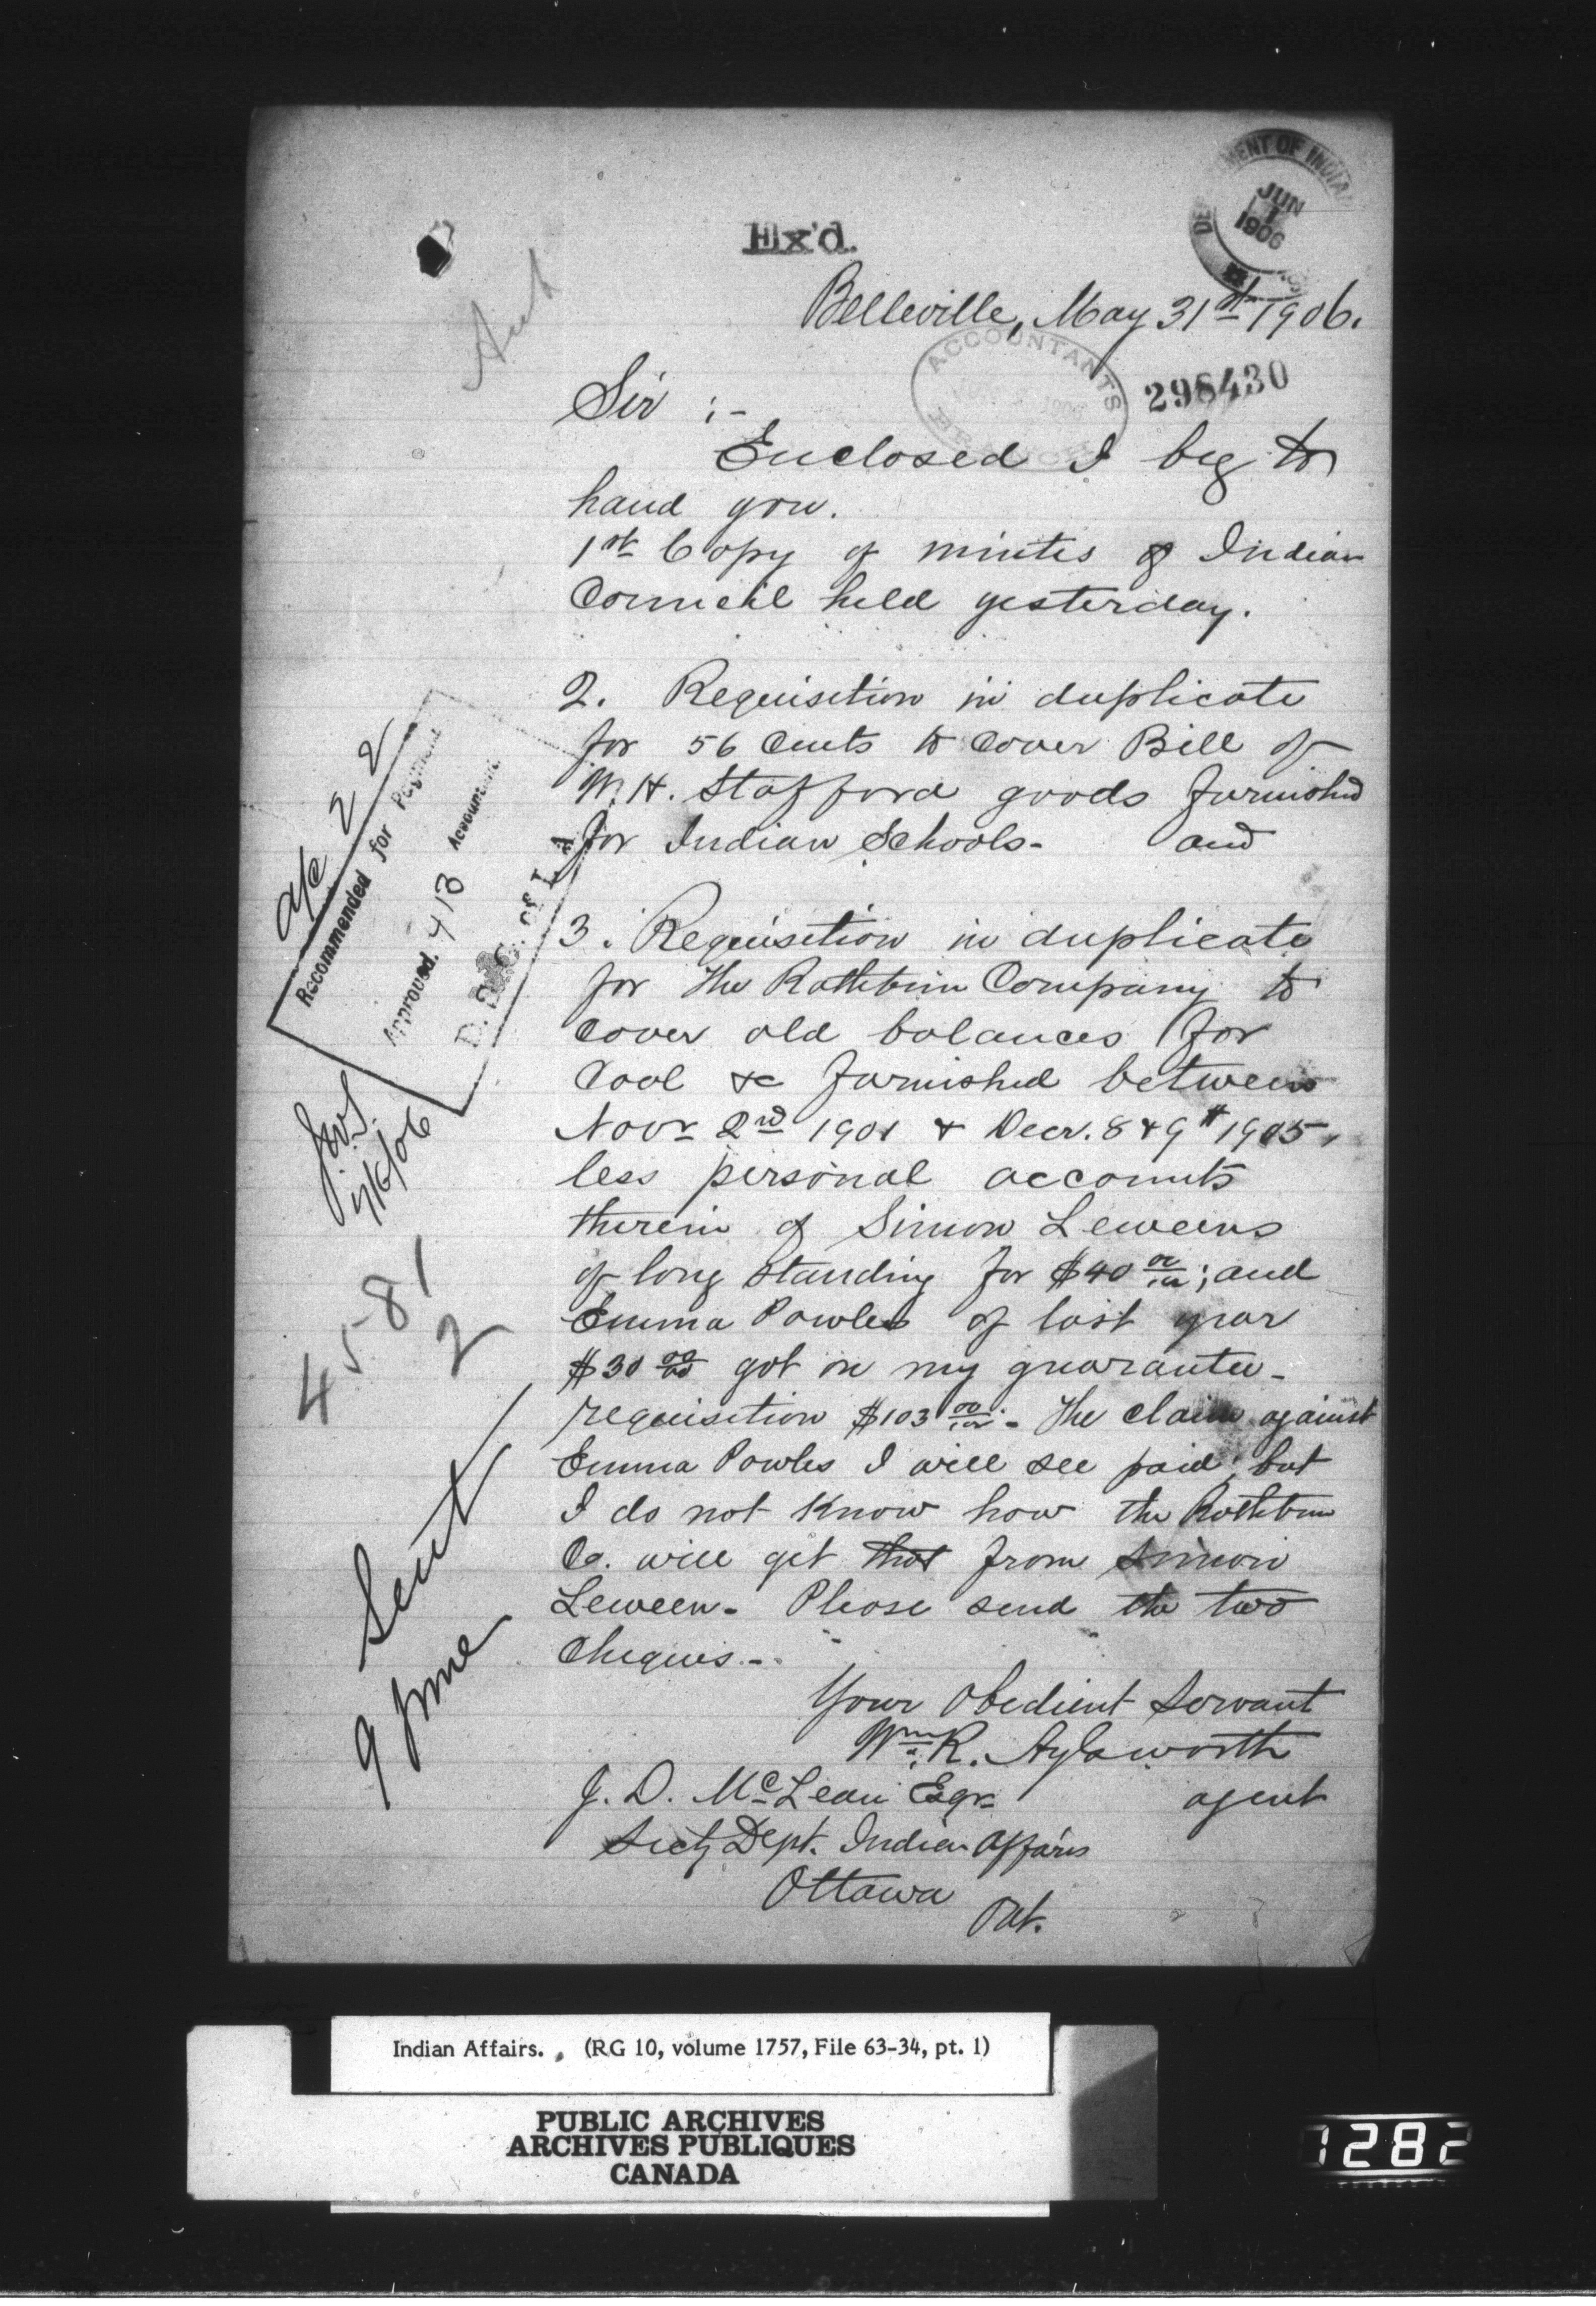 DEPARTMENT OF INDIAN
JUN
1
1906
Ex'd.
Belleville, May 31st 1906.
ACCOUNTANTS
BRANCH
298430
Sir :-
Enclosed I beg to
hand you.
1st Copy of mintes of Indian
Council held yesterday.
2. Requisition in duplicate
for 56 Cents to Cover Bill of
W. H. Stafford goods furnished
for Indian Schools- and
3. Requisition in duplicate
for the Rathbun Company to
Cover old balances for
Cool &c furnished between
Novr 2nd 1901 & Decr. 8 & 9th 1905,
less personal accounts
therein of Simon Leweens
of long standing for $40 00/100; and
Emma Powles of last year
$30 00/100 got on my guarantee-
requisition $103 00/100- The claim against
Emma Powles I will see paid, but
I do not know how the Rathbun
Co. will get that from Simon
Leween- Please send the two
Cheques.-
Your Obedient Servant
Wm. R. Aylsworth
agent
J. D. McLean Esqr
Secty Dept. Indian Affairs
Ottawa
Ont.
a/c 22
Recommended for Payment
Approved. 413 Accountant
D. S. G. of I. A.
7/6/06
4581
2
Sent
9 June
Indian Affairs. (RG 10, volume 1757, File 63-34, pt. 1)
PUBLIC ARCHIVES
ARCHIVES PUBLIQUES
CANADA
1282